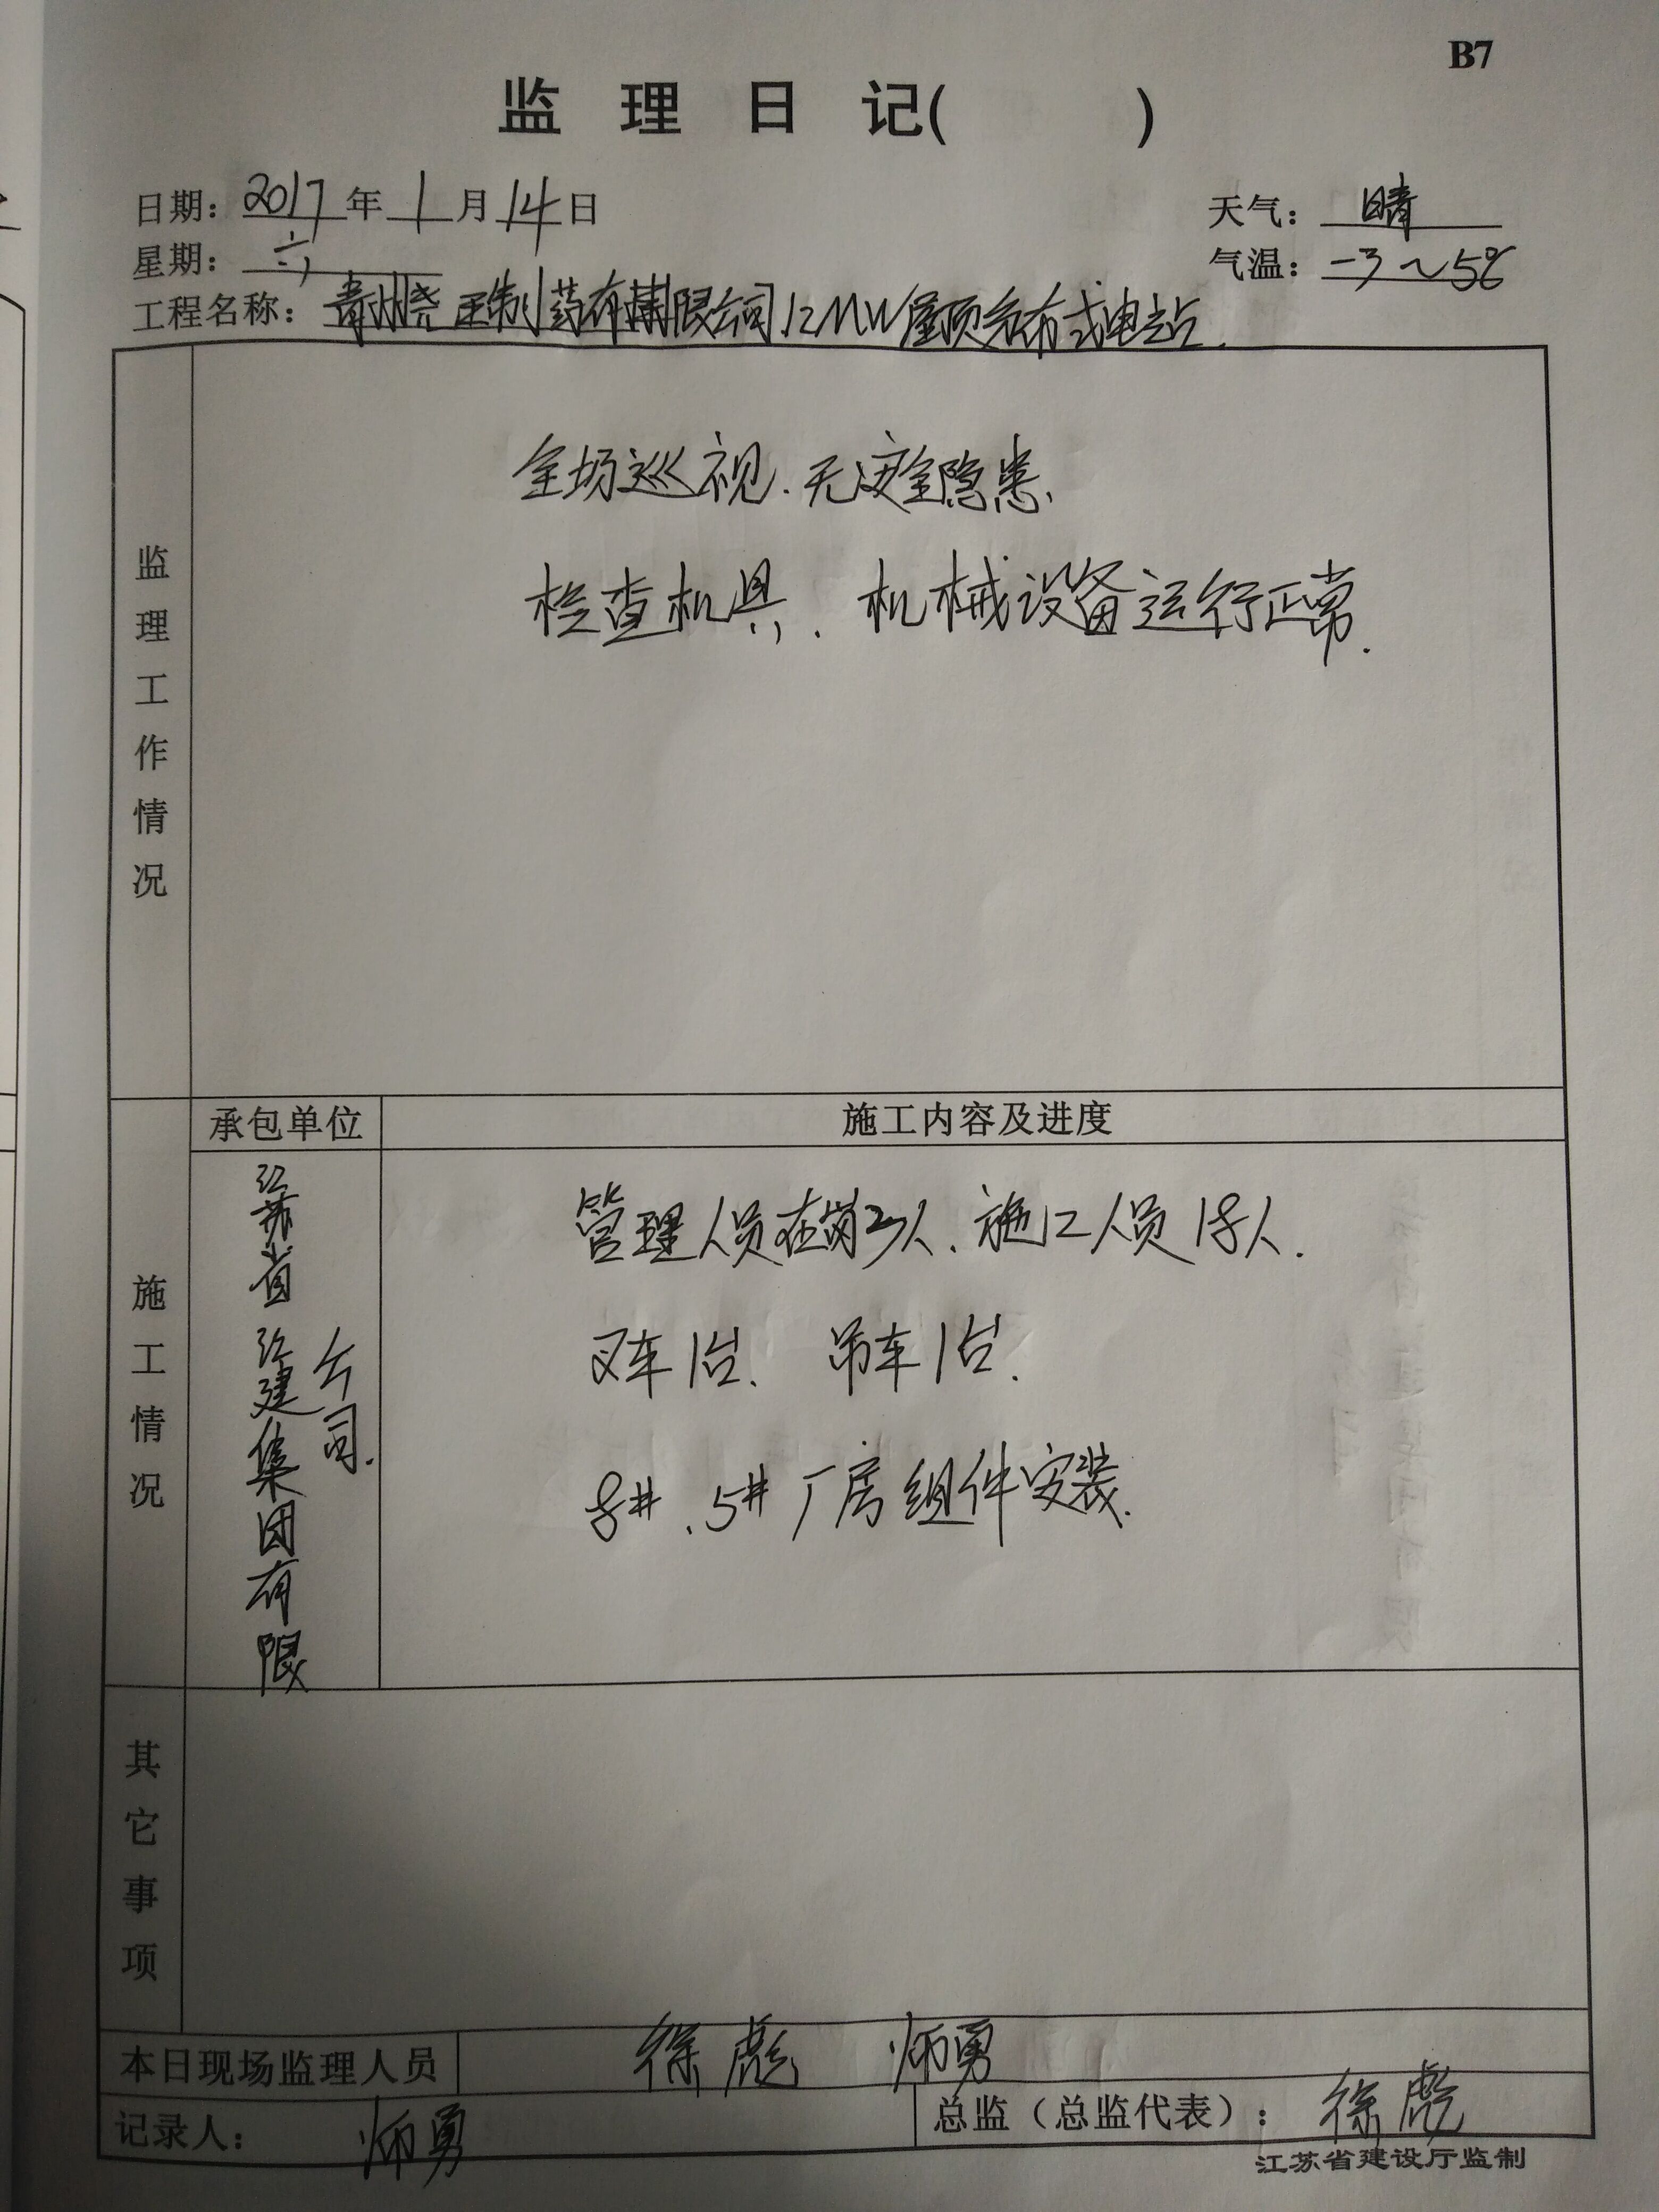 B7
监理日记( )
日期：2017年1月14日
天气：晴
星期：六
气温：-3～5℃
工程名称：制药有限公司12MW屋顶分布式电站.
监理工作情况
全场巡视.无安全隐患.
检查机具.机械设备运行正常.
施工情况
承包单位
施工内容及进度
江苏省江建集团有限公司.
管理人员在岗3人.施工人员18人.
叉车1台.吊车1台.
8#.5#厂房组件安装.
其它事项
本日现场监理人员
徐彪 师勇
记录人：师勇
总监（总监代表）：徐彪
江苏省建设厅监制